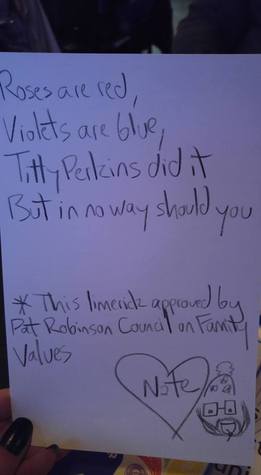 Roses are red,
Violets are blue,
Titty Perkins did it
But in no way should you
* This limerick approved by
Pat Robinson Council on Family
Values
Note